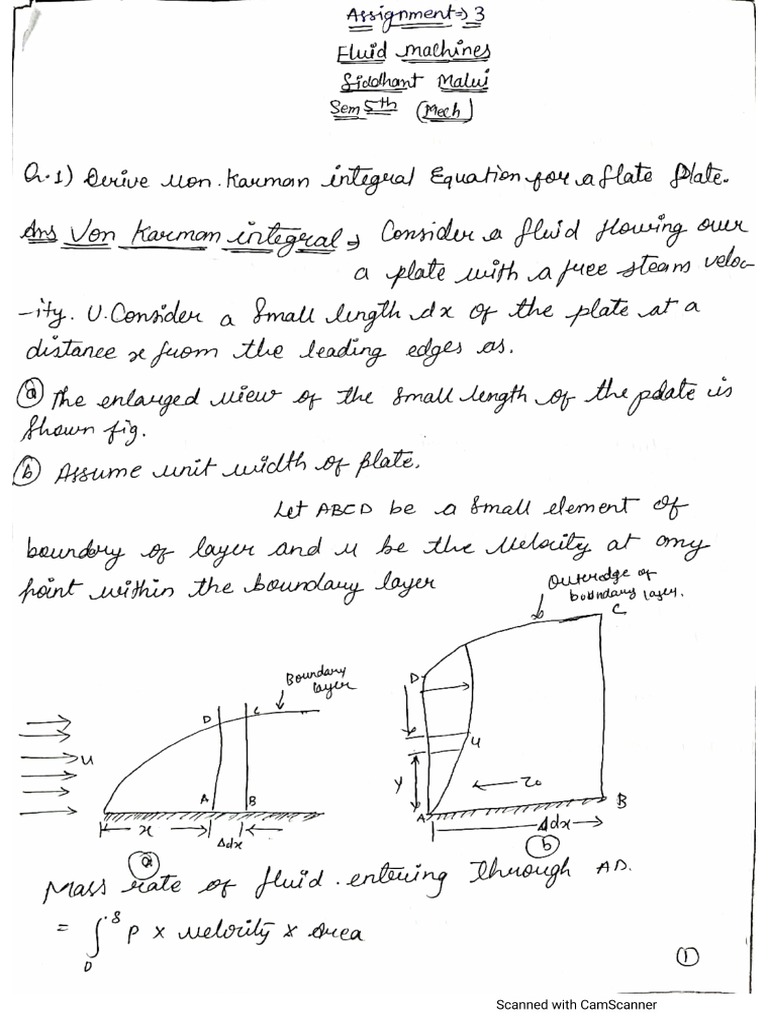 Assignment⇒ 3
Fluid machines
Siddhant Malvi
Sem 5th (Mech)
Q.1) Derive Von. Karman integral Equation for a flate plate.
Ans Von Karman integral ⇒ Consider a fluid flowing over
a plate with a free steam veloc-
-ity. U. Consider a small length dx of the plate at a
distance x from the leading edges as.
(a) The enlarged view of the small length of the pdate is
shown fig.
(b) Assume unit width of plate.
Let ABCD be a small element of
boundry of layer and u be the velocity at any
point within the boundary layer
Outeredge of
boundary layer.
C
Boundary
layer
D
C
D
U
u
y
τ0
A
B
A
B
x
Δdx
Δdx
(a)
(b)
Mass rate of fluid. entering through AD.
= ∫0^δ ρ x velority x area
(1)
Scanned with CamScanner